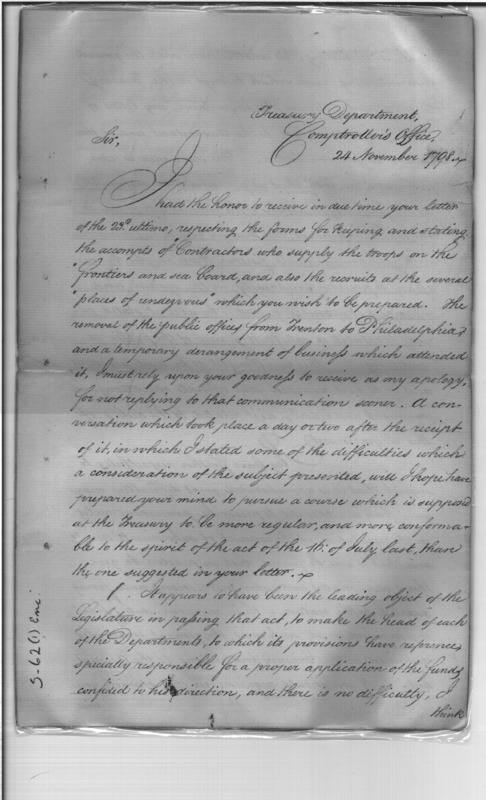 Treasury Department,
Comptroller's Office,
24 November 1798.
Sir,
I had the honor to receive in due time your letter
of the 23d ultimo, respecting the forms for keeping and stating
the accompts of "Contractors who supply the troops on the
"frontiers and sea board, and also the recruits at the several
"places of rendezvous" which you wish to be prepared. The
removal of the public offices from Trenton to Philadelphia,
and a temporary derangement of business which attended
it, I must rely upon your goodness to receive as my apology,
for not replying to that communication sooner. A con-
versation which took place a day or two after the receipt
of it, in which I stated some of the difficulties which
a consideration of the subject presented, will I hope have
prepared your mind to pursue a course which is supposed
at the Treasury to be more regular, and more conforma-
ble to the spirit of the act of the of July last, than
the one suggested in your letter.
It appears to have been the leading object of the
Legislature in passing that act, to make the head of each
of the Departments, to which its provisions have reference,
specially responsible for a proper application of the funds
confided to his direction, and there is no difficulty, I
think
S-62(1) Enc.